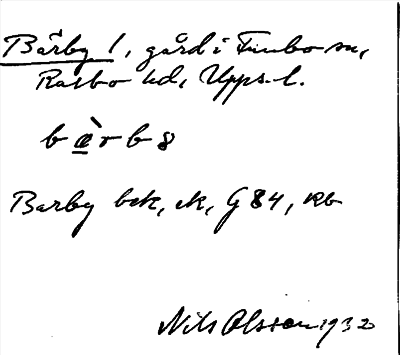 Bärby 1, gård i Funbo sn,
Rasbo hd, Upps. l.
bæ̀rb8
Barby bek, ek, G 84, Rb
Nils Olsson 1932